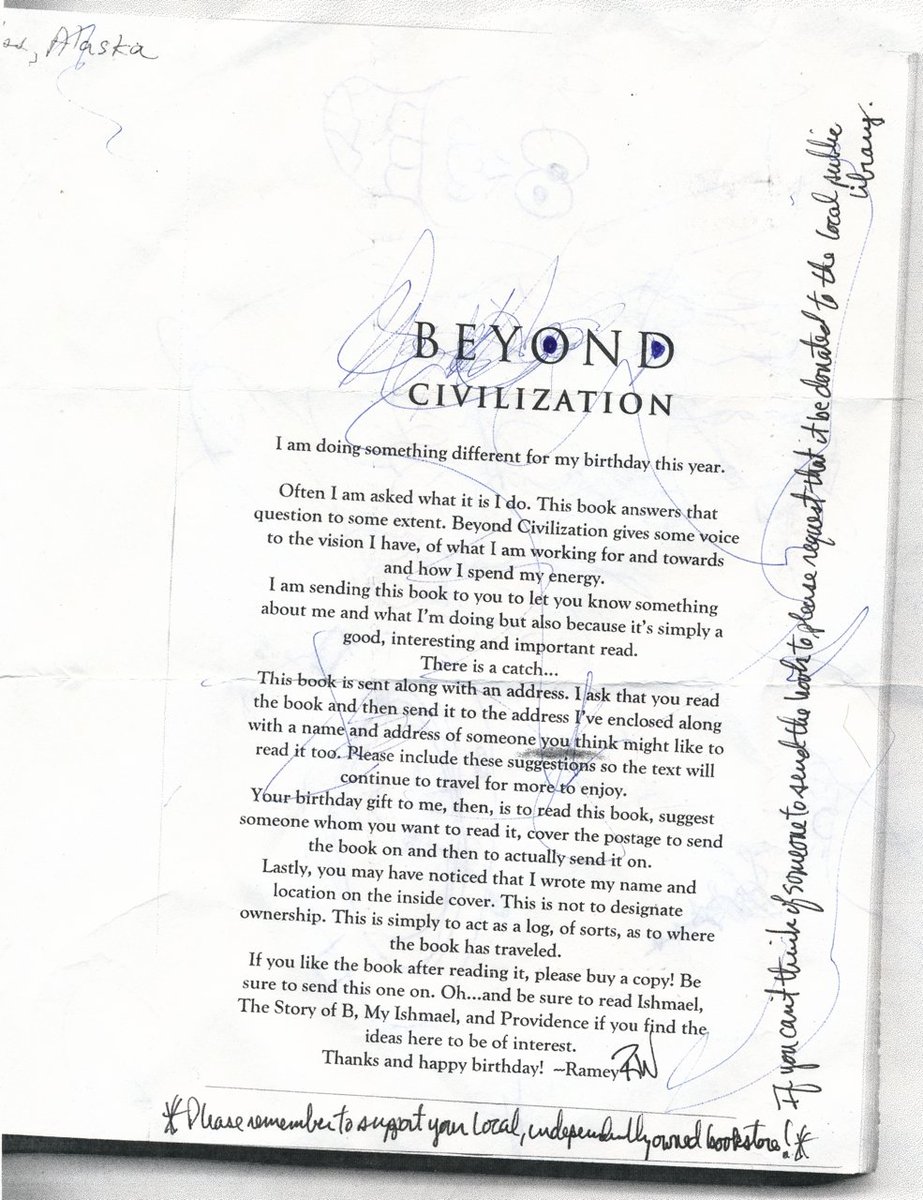 Alaska
BEYOND
CIVILIZATION
I am doing something different for my birthday this year.
Often I am asked what it is I do. This book answers that
question to some extent. Beyond Civilization gives some voice
to the vision I have, of what I am working for and towards
and how I spend my energy.
I am sending this book to you to let you know something
about me and what I'm doing but also because it's simply a
good, interesting and important read.
There is a catch...
This book is sent along with an address. I ask that you read
the book and then send it to the address I've enclosed along
with a name and address of someone you think might like to
read it too. Please include these suggestions so the text will
continue to travel for more to enjoy.
Your birthday gift to me, then, is to read this book, suggest
someone whom you want to read it, cover the postage to send
the book on and then to actually send it on.
Lastly, you may have noticed that I wrote my name and
location on the inside cover. This is not to designate
ownership. This is simply to act as a log, of sorts, as to where
the book has traveled.
If you like the book after reading it, please buy a copy! Be
sure to send this one on. Oh...and be sure to read Ishmael,
The Story of B, My Ishmael, and Providence if you find the
ideas here to be of interest.
Thanks and happy birthday! ~Ramey RW
*Please remember to support your local, independently owned bookstore!*
If you can't think of someone to send the book to please request that it be donated to the local public
library.